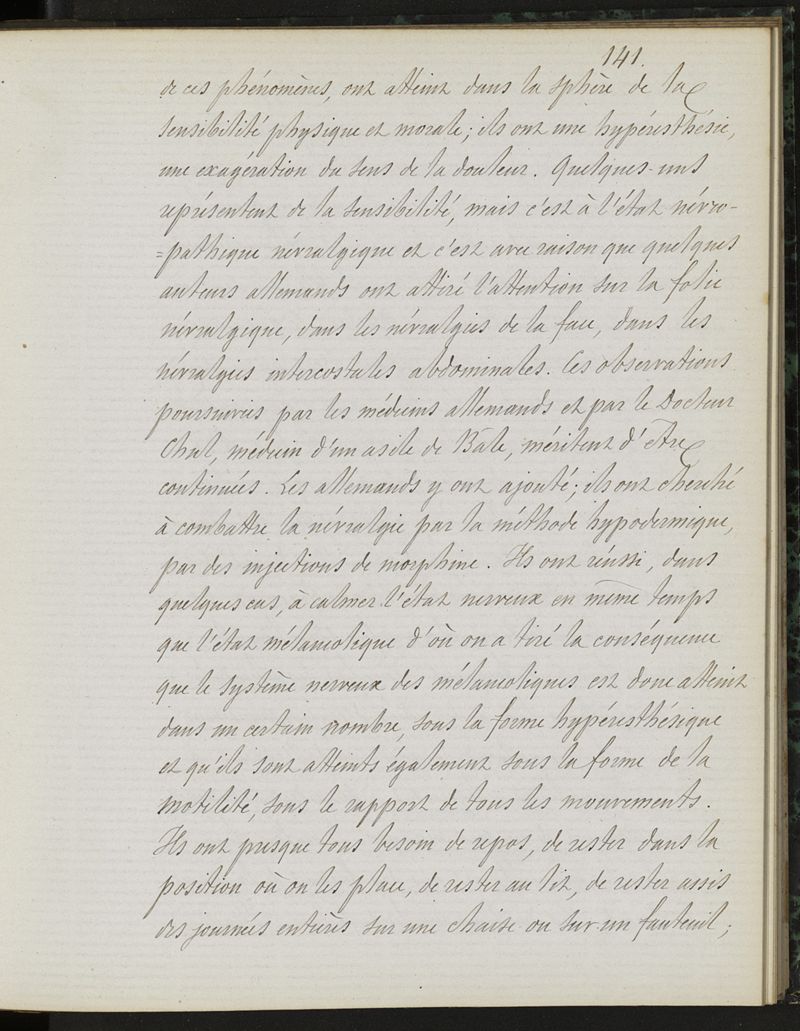 141.
de ces phénomènes, ont atteint dans la sphère de la
sensibilité physique et morale; ils ont une hypéresthésie,
une exagération du sens de la douleur. Quelques-uns
représentent de la sensibilité, mais c'est à l'état névro-
=pathique névralgique et c'est avec raison que quelques
auteurs allemands ont attiré l'attention sur la folie
névralgique, dans les névralgies de la face, dans les
névralgies intercostales abdominales. Ces observations
poursuivies par les médecins allemands et par le Docteur
Chul, médecin d'un asile de Bâle, méritent d'être
continuées. Les allemands y ont ajouté; ils ont cherché
à combattre la névralgie par la méthode hypodermique,
par des injections de morphine. Ils ont réussi, dans
quelques cas, à calmer l'état nerveux en même temps
que l'état mélancolique d'où on a tiré la conséquence
que le système nerveux des mélancoliques est donc atteint
dans un certain nombre, sous la forme hypéresthésique
et qu'ils sont atteints également sous la forme de la
motilité, sous le rapport de tous les mouvements.
Ils ont presque tous besoin de repos, de rester dans la
position où on les place, de rester au lit, de rester assis
des journées entières sur une chaise ou sur un fauteuil;